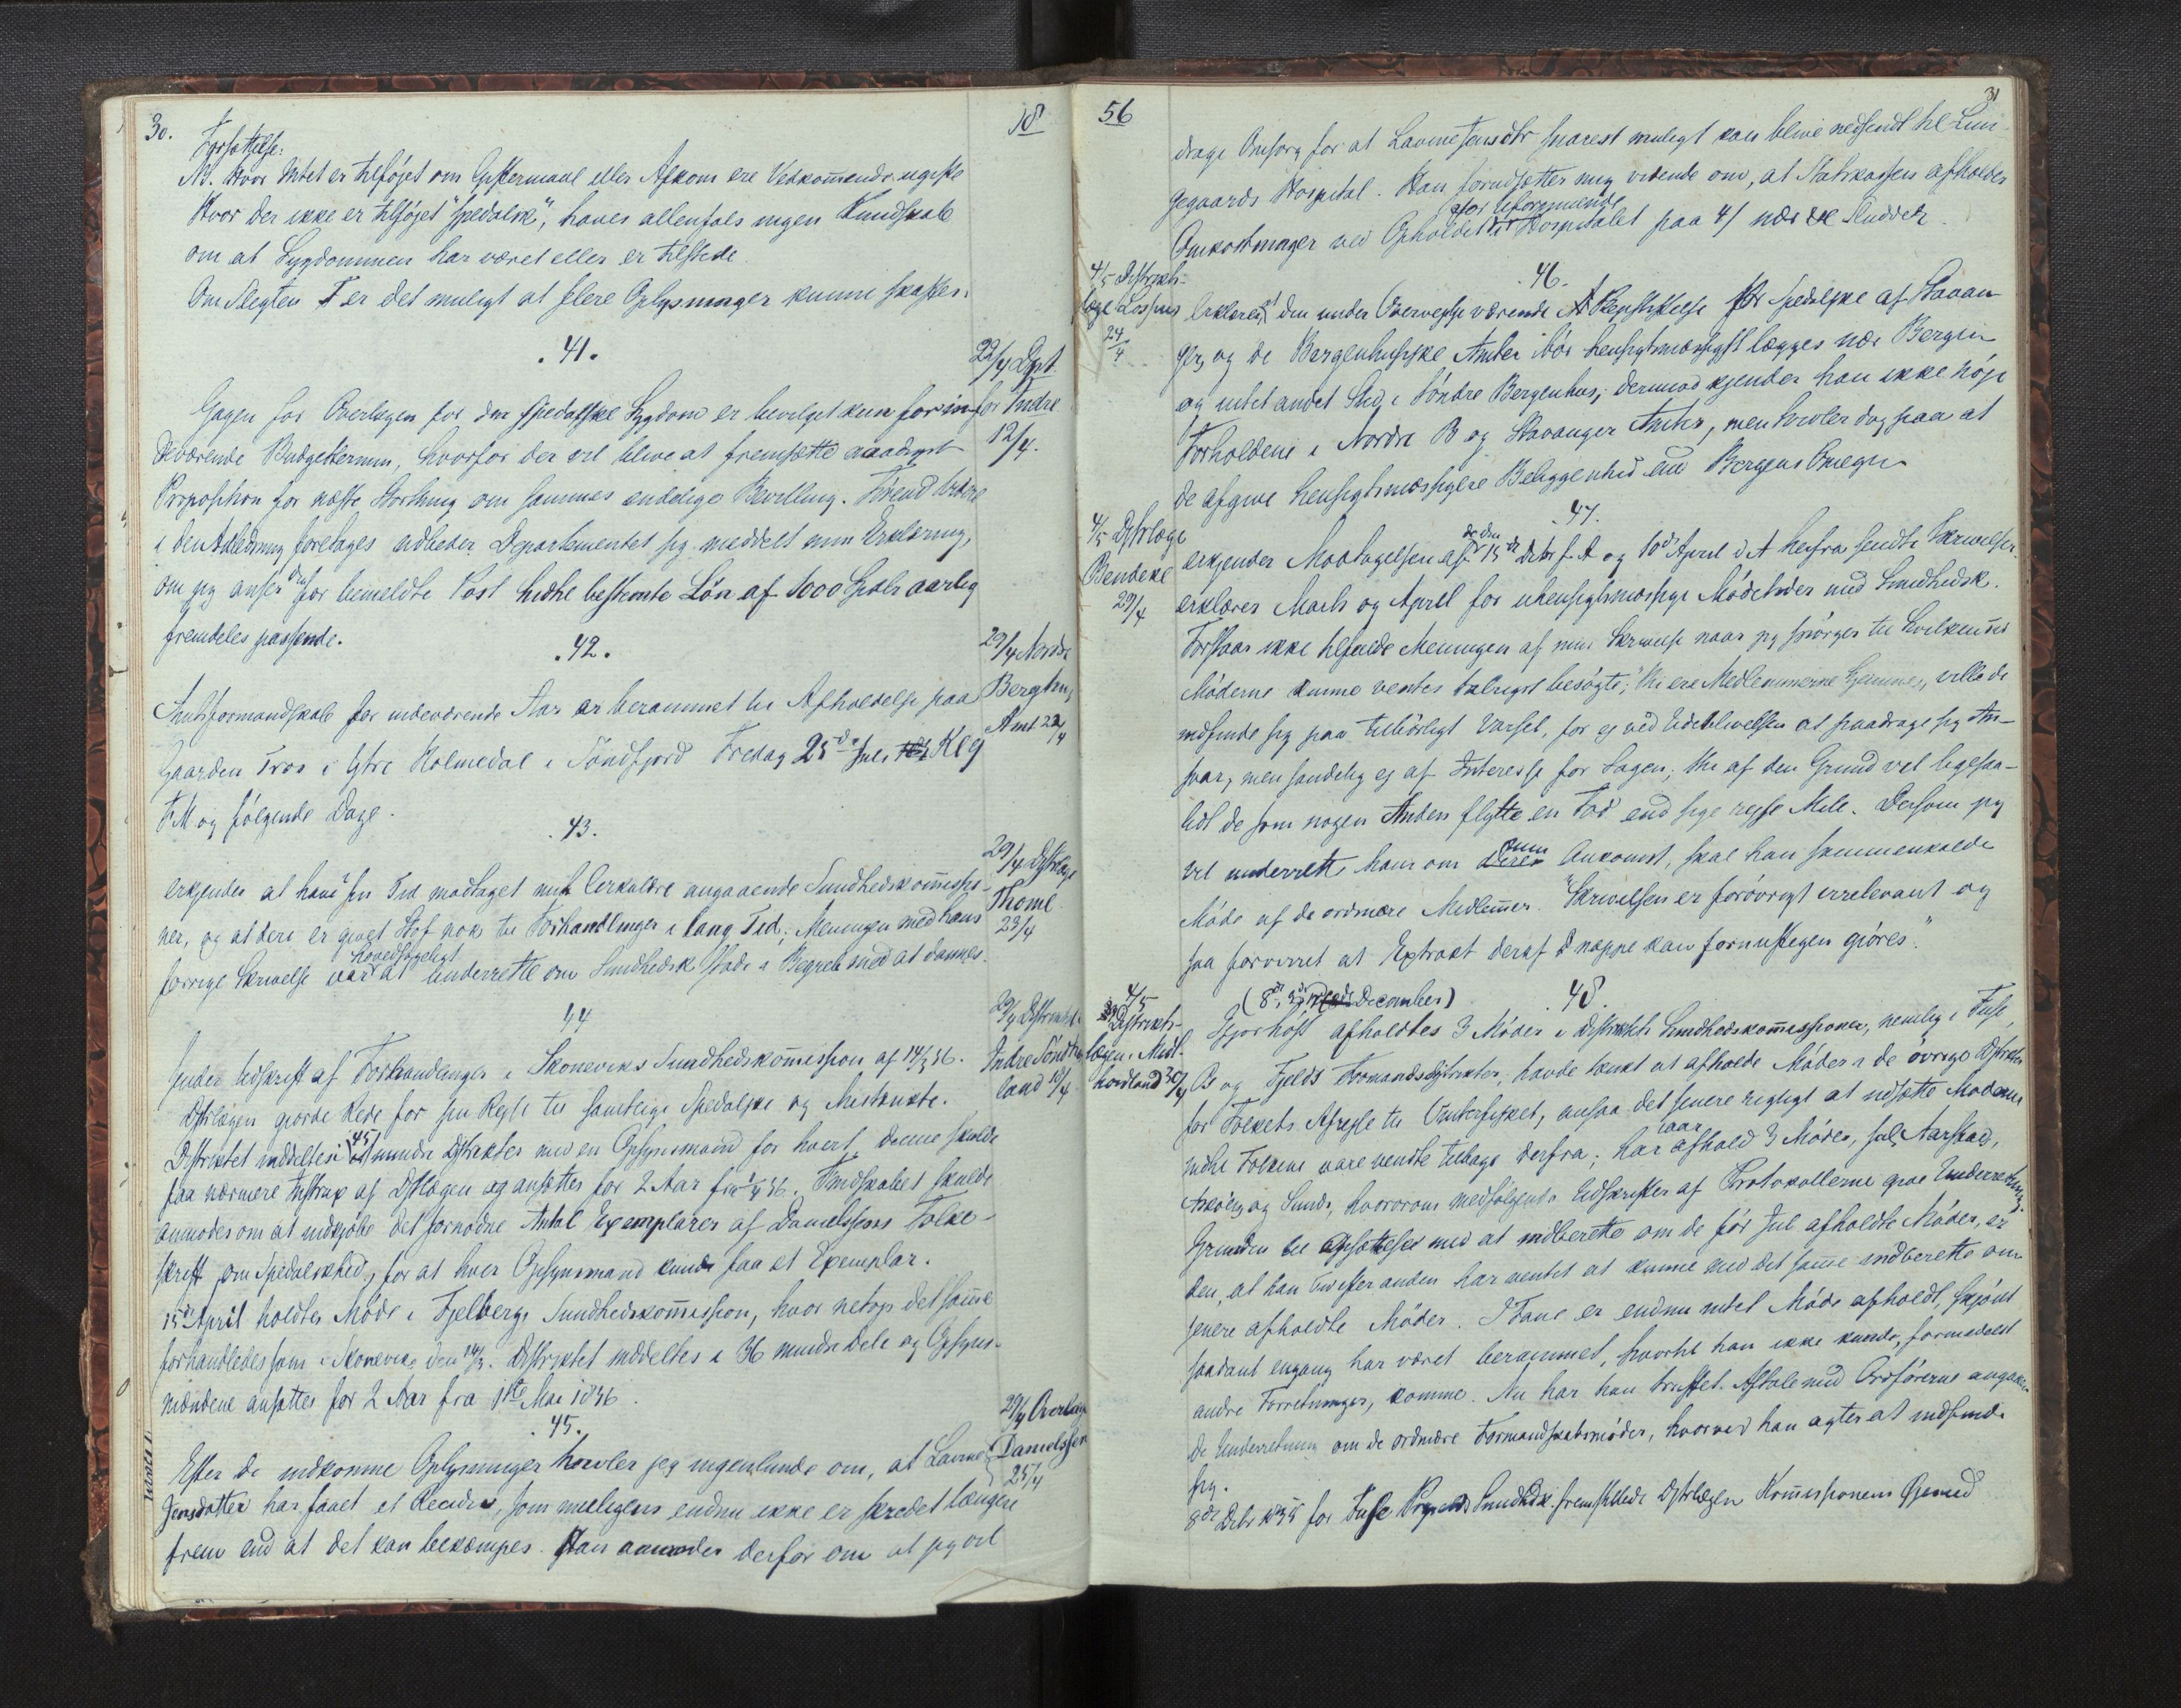 30.
18
Fortsættelse:
NB. Hvor Intet er tilføjet om Giftermaal eller Afkom ere Vedkom̄ende ugifte
Hvor der ikke er tilføjet "spedalsk", haves allenfals ingen Kundskab
om at Sygdommen har været eller er tilstede.
Om Slegten T er det muligt at flere Oplysninger kunne skaffes.
.41.
22/4 Dpt
for Indre
12/4.
Gagen for Overlægen for den spedalske Sygdom er bevilget kun for in-
deværende Budgettermin, hvorfor der vil blive at fremsætte naadigst
Proposition for næste Storthing om sammes endelige Bevilling. Forend videre
i den Anledning foretages udbeder Departementet sig meddelt min Erklæring,
om jeg anser den for bemeldte Post hidtil bestemte Løn af 1000 Spdlr aarlig
fremdeles passende.
.42.
29/4 Nordre
Berghus
Amt 22/4
Amtsformandskab for indeværende Aar er berammet til Afholdelse paa
Gaarden Tros i Ytre Holmedal i Søndfjord Fredag 25de Juli Kl 9
FM og følgende Dage.
.43.
29/4 Distrlæge
Thome
23/4
erkjender at have sin Tid modtaget mit Cirkulære angaaende Sundhedskom̄issio-
ner, og at deri er givet Stof nok til Forhandlinger i lang Tid; Meningen med hans
forrige Skrivelse var hovedsageligt at underrette om Sundhedsk stode i Begreb med at dannes.
44
29/4 Distrikts
Indre Søndhord
land 18/4
sender Udskrift af Forhandlinger i Skonevigs Sundhedskom̄ission af 14/3 56.
Distrlægen gjorde Rede for sin Rejse til samtlige Spedalske og Mistænkte.
Distriktet inddeltes i 45 mindre Distrikter med en Opsynsmand for hvert, denne skulde
faa nærmere Instrux af Dstlægen og ansættes for 2 Aar fra 1/4 56. Fmdskabet skulde
anmodes om at indkjøbe det fornødne Antal Exemplarer af Danielssens Folke-
skrift om Spedalskhed, for at hver Opsynsmand kunde faa et Exemplar.
15de April holdtes Møde i Fjelbergs Sundhedskom̄ission, hvor netop det sam̄e
forhandledes som i Skonevig den 14/3. Distriktet inddeltes i 36 mindre Dele og Opsyns-
mændene ansattes for 2 Aar fra 1ste Mai 1856.
.45.
29/4 Overlæge
Danielssen
25/4
Efter de indkomne Oplysninger tvivler jeg ingenlunde om, at Lavine
Jensdatter har faaet et Recidiv, som muligens endnu ikke er skredet længere
frem end at det kan bekæmpes. Han anmoder derfor om at jeg vil
56
31
drage Omsorg for at Lavine Jensdtr snarest muligt kan blive nedsendt til Lun-
gegaards Hospital. Han forudsætter mig vidende om, at Statskassen afholder
Omkostninger ved Opholdet i Hospitalet paa 4/ nær
46.
4/5 Distrikts-
læge Lossius
24/4
erklærer, at den under Overvejelse værende Plejestiftelse for Spedalske af Stavan-
ger og de Bergenhusiske Amter bør hensigtsmæssigst lægges nær Bergen
og intet andet Sted i Søndre Bergenhus; dermod kjender han ikke nøje
Forholdene i Nordre B og Stavanger Amter, men tvivler dog paa at
de afgive hensigtsmæssigere Beliggenhed end Bergens Omegn
.47.
4/5 Distrlæge
Bendeke
29/4
erkjender Modtagelsen af de den 15de Debr f. A og 10de April d A herfra sendte Skrivelser.
erklærer Marts og April for uhensigtsmæssige Mødetider med Sundhedsk.
Forstaar ikke tilfulde Meningen af min Skrivelse naar jeg spørger til hvilken Tid
Møderne kunne ventes talrigst besøgte; "Thi ere Medlemmerne hjemme, ville de
indfinde sig paa tilbørligt Varsel, for ej ved Udeblivelsen at paadrage sig An-
svar, men sandelig ej af Interesse for Sagen; thi af den Grund vil ligesaa-
lidt de som nogen Anden flytte en Fod end sige rejse Mile. Dersom jeg
vil underrette ham om min Ankomst, skal han sammenkalde
Møde af de ordinære Medlem̄er. "Skrivelsen er forøvrigt irrelevant og
saa forvirret at Extrakt deraf næppe kan fornuftigen gjøres."
48.
4/5
Distrikts-
lægen i Midt-
hordland 30/4
December)
Ifjorhøst afholdtes 3 Møder i Distriktets Sundhedskom̄issioner, nemlig i Fuse,
Os og Fjelds Formandsdistrikter; havde tænkt at afholde Møder i de øvrige Distrikter
før Folkets Afrejse til Vinterfisket, ansaa det senere rigtigt at udsætte Møderne
indtil Folkene vare vendte tilbage derfra; har iaar afholdt 3 Møder, Aarstad,
Askøen og Sund, hvorom medfølgende Udskrifter af Protokollerne give Underretning.
Grunden til Opsættelsen med at indberette om de før Jul afholdte Møder, er
den, at han Tid efter anden har ventet at kunne med det sam̄e indberette om
senere afholdte Møder. I Fane er endnu intet Møde afholdt, skjønt
saadant engang har været berammet, hvortil han ikke kunde, formedelst
andre Forretninger, komme. Nu har han truffet Aftale med Ordførerne angaaen-
de Underretning om de ordinære Formandskabsmøder, hvorved han agter at indfinde
sig.
8de Debr 1855 for Fuse Sundhdsk. fremstillede Dstrlægen Kom̄issionens Øjemed